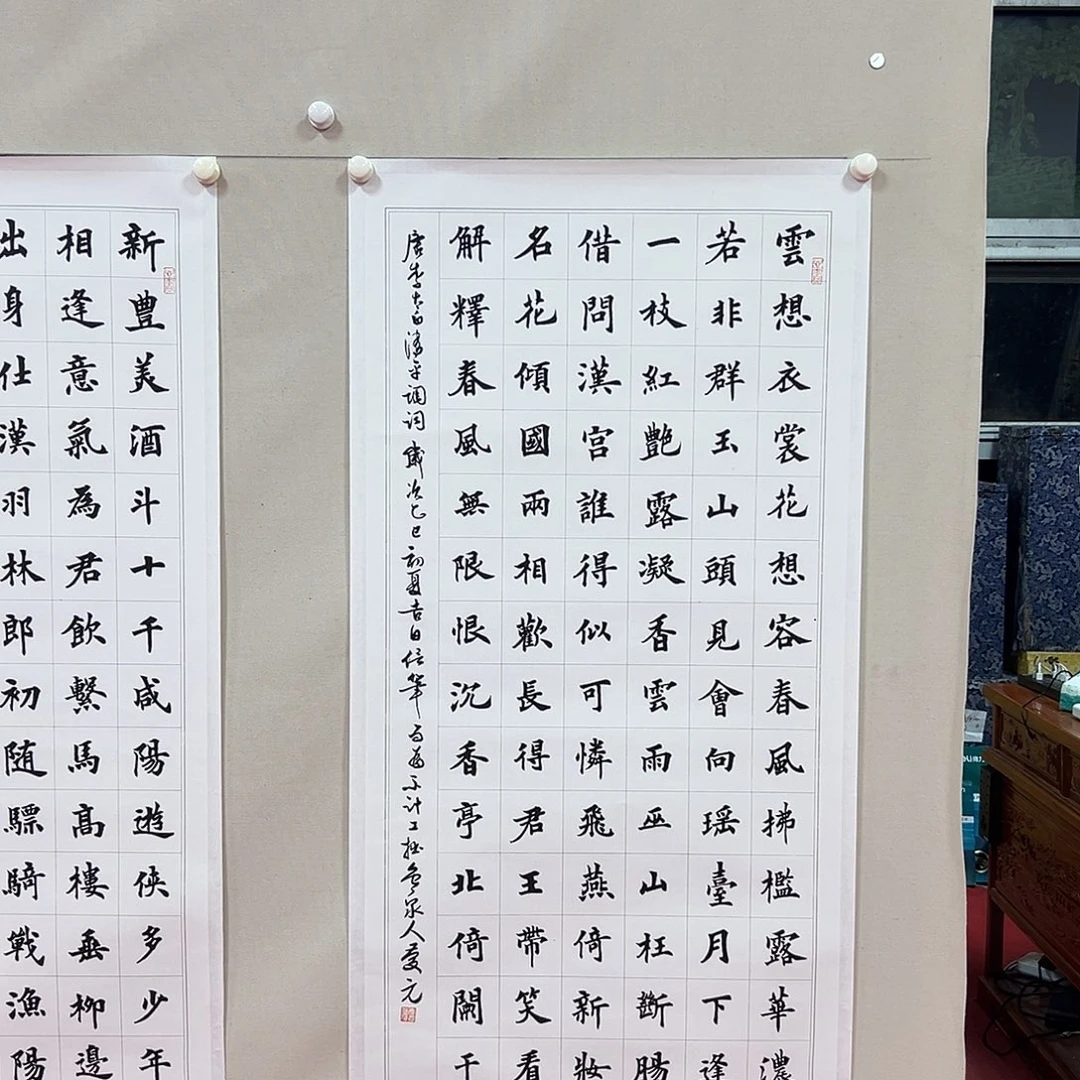 雲想衣裳花想容春風拂檻露華濃
若非群玉山頭見會向瑶臺月下逢
一枝紅艷露凝香雲雨巫山枉斷腸
借問漢宫誰得似可憐飛燕倚新妝
名花傾國兩相歡長得君王帶笑看
解釋春風無限恨沉香亭北倚闌干
唐李太白清平調詞歲次乙巳初夏吉日信筆不計工拙泉人慶元
新豊美酒斗十千咸陽遊俠多少年
相逢意氣為君飲繫馬高樓垂柳邊
出身仕漢羽林郎初随驃騎戰漁陽